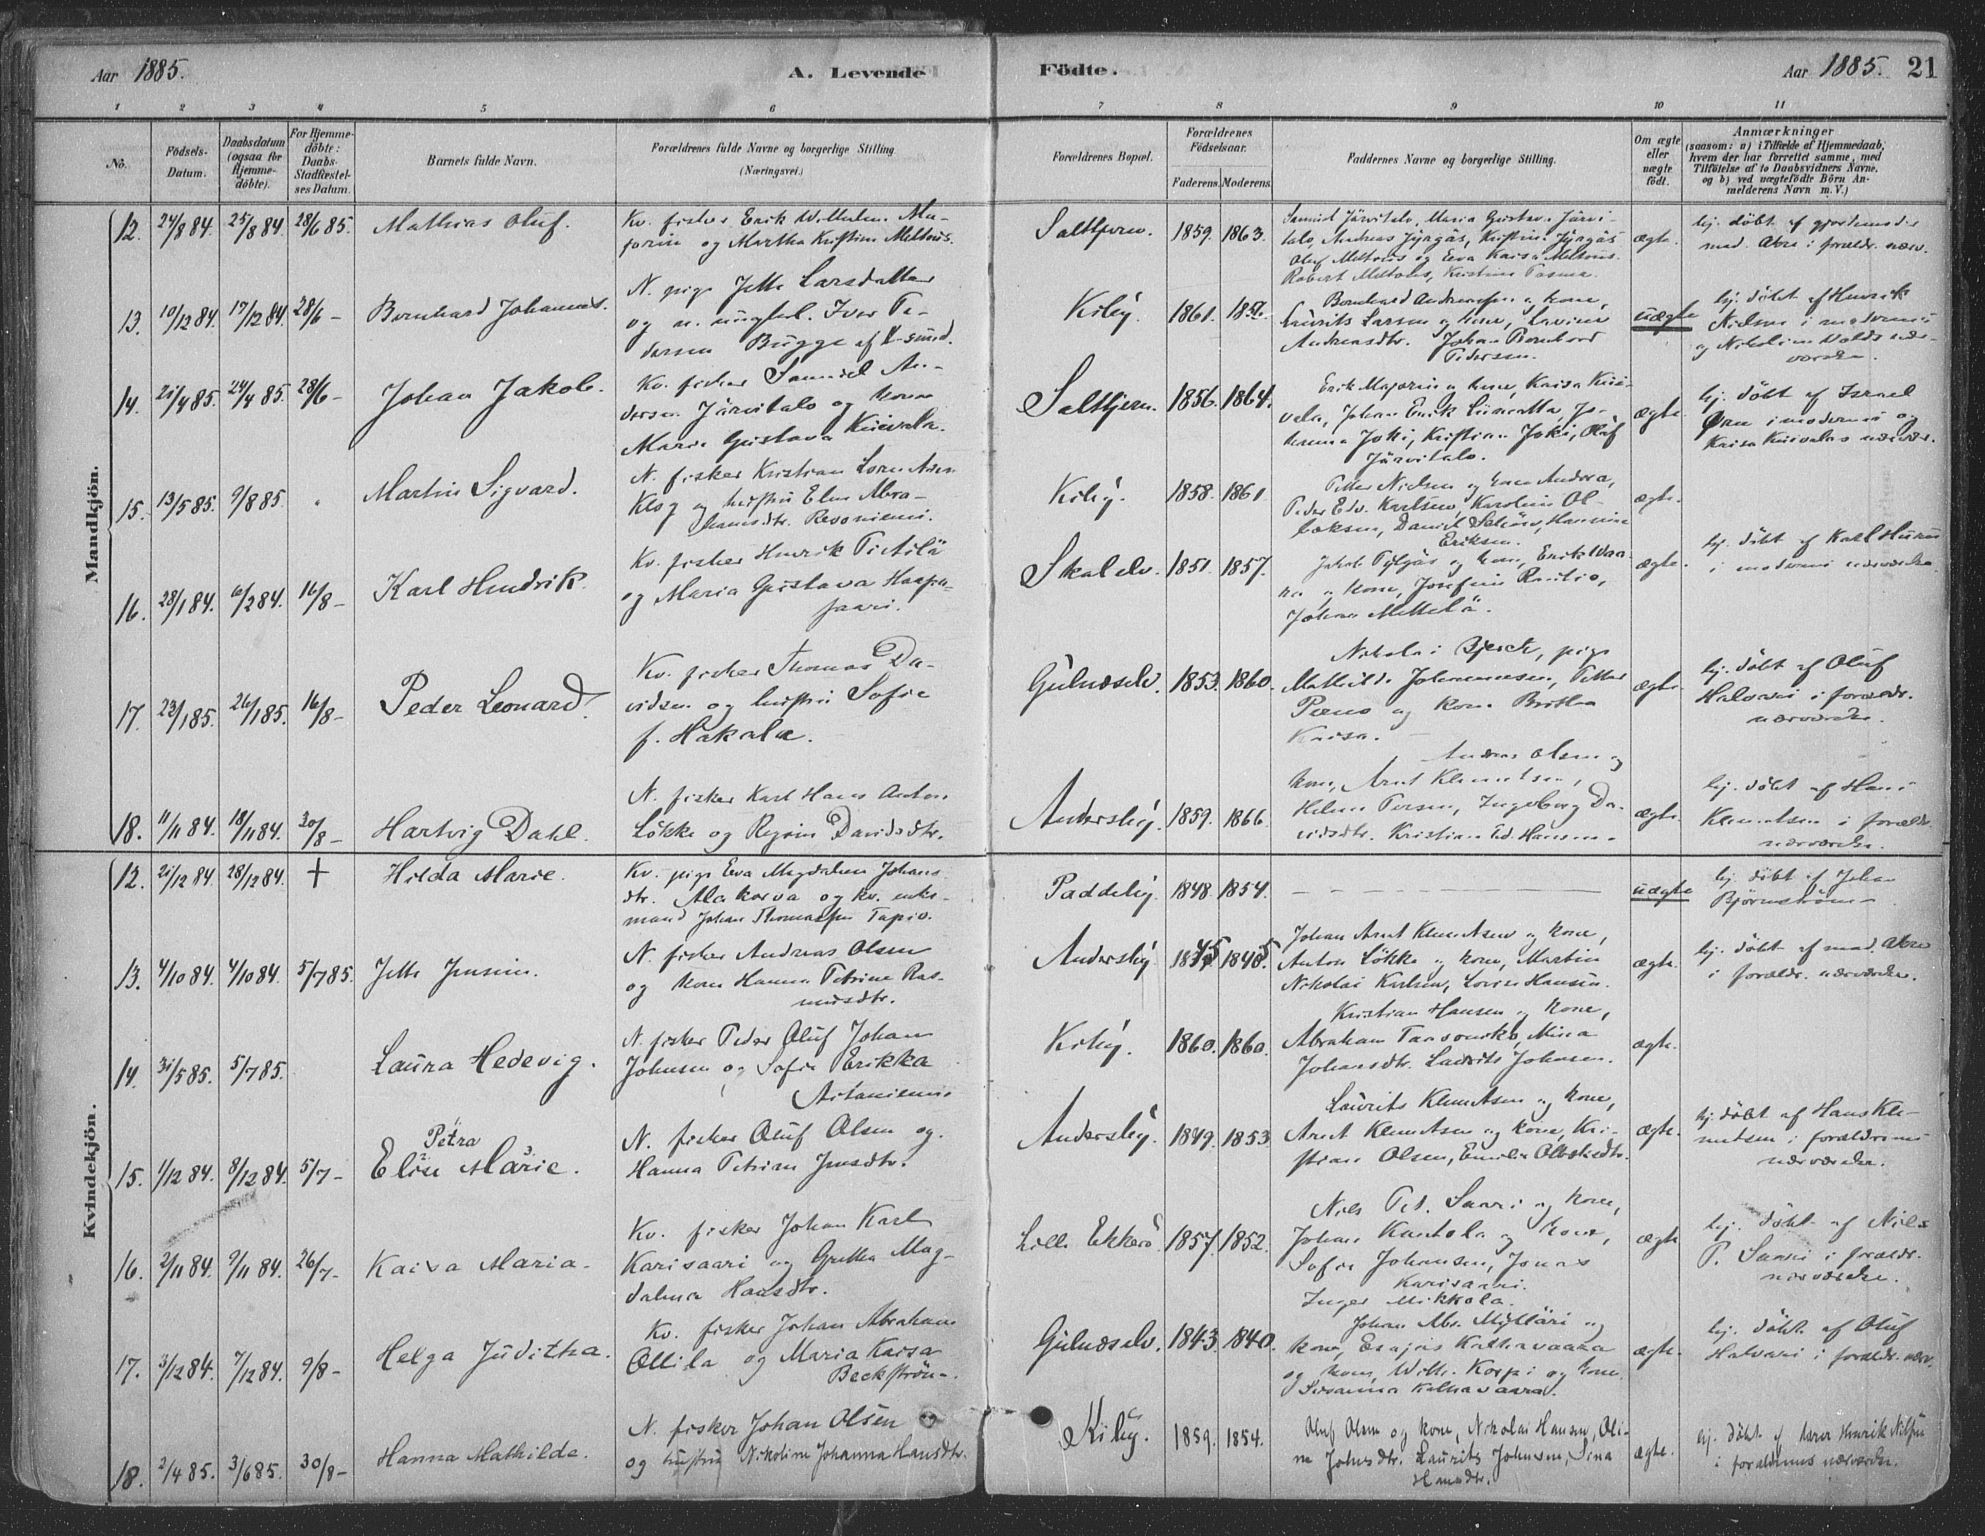 Aar 1885.
A. Levende Födte.
Aar 1885. 21
1 2 3 4 5 6 7 8 9 10 11
No.
Födsels-
Datum.
Daabsdatum
(ogsaa for
Hjemme-
döbte).
For Hjemme-
döbte:
Daabs-
Stadfæstel-
ses Datum.
Barnets fulde Navn.
Forældrenes fulde Navne og borgerlige Stilling
(Næringsvei.)
Forældrenes Bopæl.
Forældrenes
Födselsaar.
Faderens. Moderens.
Faddernes Navne og borgerlige Stilling.
Om ægte
eller
uægte
födt.
Anmærkninger
(saasom: a) i Tilfælde af Hjemmedaab,
hvem der har forrettet samme, med
Tilföielse af to Daabsvidners Navne,
og b) ved uægtefödte Börn An-
melderens Navn m. V.)
Mandkjön.
12. 24/8 84. 25/8 84. 28/6 85. Mathias Oluf.
Kv. fisker Erik Wilhelm Ma-
jorin og Martha Kristine
Saltfjern. 1859. 1863.
Samuel Järvitalo, Maria Gustava Järvi-
talo, Andreas Jyrgäs, Kristine Jyrgäs
Oluf og Eva Kaisa
Robert Kristine
ægte.
hj. döbt af gjordemoder
mad. i forældr. nærv.
13. 10/12 84. 17/12 84. 28/6 – Bernhard Johannes.
N. pige Jette Larsdatter
og n. ungkl. Iver Pe-
dersen Bugge af
Kiby. 1861. 1856.
Bernhard Andreassen og kone,
Laurits Larsen og kone, Lavine
Andreasdtr. Johan Bernhard
Pedersen.
uægte
hj. döbt af Henrik
Nielsen i moderens
og Nikoline nær-
værelse.
14. 21/4 85. 24/4 85. 28/6 – Johan Jakob.
Kv. fisker Samuel An-
dersen Järvitalo og kone
Maria Gustava Kuivala.
Saltfjern. 1856. 1864.
Erik Majorin og kone, Kaisa Kui-
vala, Johan Erik Liinatta, Jo-
hanna Joki, Kristian Joki, Oluf
Järvitalo.
ægte.
hj. döbt af Israel
i moderens og
Kaisa Kuivalas nærvær.
15. 13/5 85. 9/8 85. Martin Sigvard.
N. fisker Kristian
Klog og hustru Elen Abra-
hamsdtr.
Kiby. 1858. 1861.
Petter Nielsen og kone Andrea,
Peder Edv. Karlsen, Karoline Ol-
Daniel Hansine
Eriksen.
ægte.
16. 28/1 84. 6/2 84. 16/8 – Karl Hendrik.
Kv. fisker Henrik Pietilä
og Maria Gustava Haapa-
saari.
Skalelv. 1851. 1857.
og kone, Erik
og kone, Josefine
Johan Mettelä.
ægte.
hj. döbt af Karl
i moderens nærværelse.
17. 23/1 85. 26/1 85. 16/8 – Peder Leonard.
Kv. fisker Thomas Da-
vidsen og hustru Sofie
f. Hakala.
Gulnæselv. 1853. 1860.
Nikolai Bjerck, pige
Mathilde Johannesen, Petter
og kone Britha
Kaisa.
ægte.
hj. döbt af Oluf
Halvari i forældr.
nærværelse.
18. 11/11 84. 18/11 84. 30/8 – Hartvig Dahl.
N. fisker Karl Hans Anton
Løkke og Regine Davidsdtr.
Andersby. 1859. 1866.
Andreas Olsen og
kone, Arnt Klemetsen,
Helene Persen, Ingeborg Da-
vidsdtr. Kristian Ed. Hansen.
ægte.
hj. döbt af Hans
Klemetsen i forældr.
nærværelse.
Kvindekjön.
12. 21/12 84. 28/12 84. + Hilda Marie.
Kv. pige Eva Magdalena Johans
dtr. Alakorva og kv. enke-
mand Johan Thomassen Tapio.
Paddeby. 1848. 1854.
uægte
hj. döbt af Johan
Bjørnstrøm
13. 4/10 84. 4/10 84. 5/7 85. Jette Jensine.
N. fisker Andreas Olsen
og kone Hanna Petrine Ras-
musdtr.
Andersby 1845. 1845.
Johan Arnt Klemetsen og kone,
Anton Løkke og kone, Martin
Nikolai Karlsen, Lovise Hansen.
ægte.
hj. döbt af mad.
i forældr. nærværelse.
14. 31/5 85. 5/7 85. Laura Hedevig.
N. fisker Peder Oluf Johan
Johnsen og Sofie Erikka
Kiby. 1860. 1860.
Kristian Hansen og kone,
Abraham Mina
Johansdtr. Laurits Johnsen.
ægte.
15. 1/12 84. 8/12 84. 5/7 –
Petra
Elise Marie.
N. fisker Oluf Olsen og
Hanna Petrine Jensdtr.
Andersby. 1849. 1853
Laurits Klemetsen og kone,
Arnt Klemetsen og kone, Kri-
stian Olsen, Emilie
ægte.
hj. döbt af Hans Kle-
metsen i forældrenes
nærværelse.
16. 2/11 84. 9/11 84. 26/7 – Kaisa Maria
Kv. fisker Johan Karl
Karisaari og Gretha Mag-
dalena Hansdtr.
Lille Ekkerø 1857. 1852.
Niels Pet. Saari og kone,
Johan Kantola og kone,
Sofie Johansen, Jonas
Karisaari.
Inger Mikkola.
ægte
hj. döbt af Niels
P. Saari i forældr.
nærværelse.
17. 3/12 84. 7/12 84. 9/8 – Helga Juditha.
Kv. fisker Johan Abraham
Ollila og Maria Kaisa
Beckstrøm.
Gulnæselv. 1843. 1840.
Johan Abr. Mylläri og
kone, Esajas Kalhavaara
og kone, Wilh. Korpi og kone
Susanna Kalhavaara.
ægte.
hj. döbt af Oluf
Halvari i forældr. nærv.
18. 2/4 85. 3/6 85. 30/8 – Hanna Mathilde.
N. fisker Johan Olsen
og hustru Nikoline Johanna Hansdtr.
Kiby. 1859. 1854.
Oluf Olsen og kone, Nikolai Hansen, Oli-
ne Johnsdtr. Laurits Johnsen, Sina
Hansdtr.
ægte.
hj. döbt af lærer Henrik Nilsen
i forældrenes nærværelse.